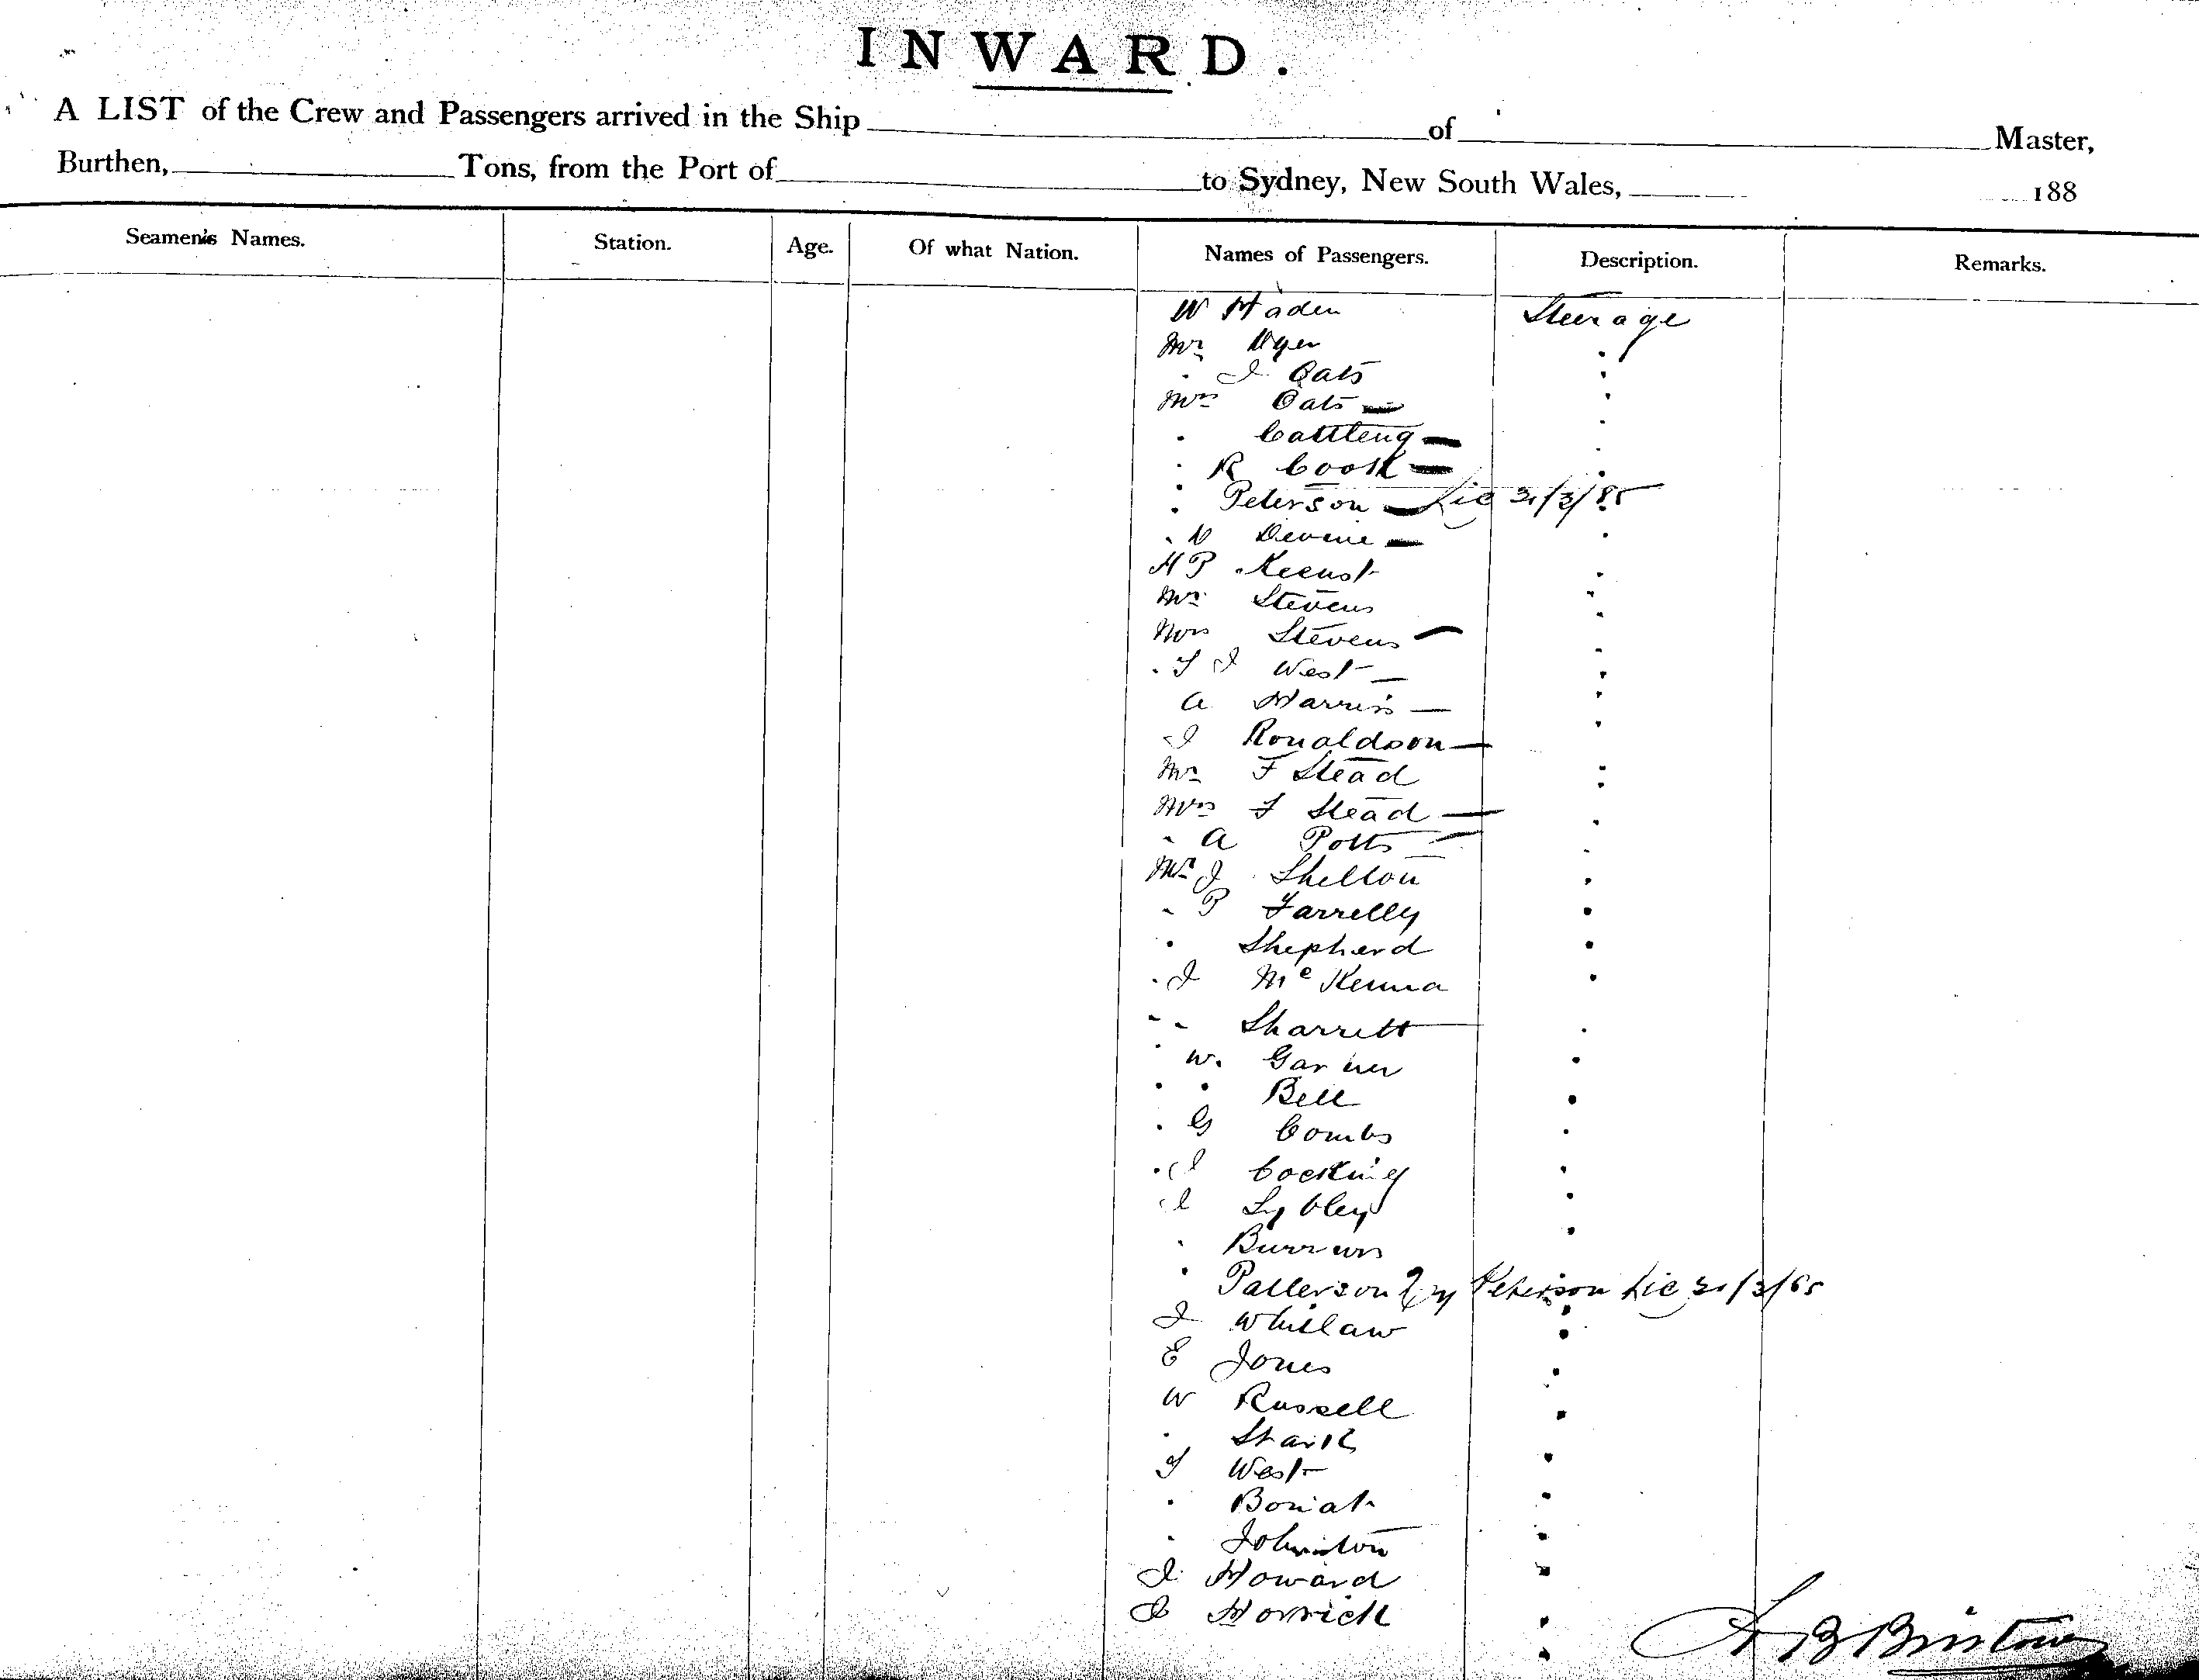 INWARD.
A LIST of the Crew and Passengers arrived in the Ship of Master,
Burthen, Tons, from the Port of to Sydney, New South Wales, 188
Seamen's Names. Station. Age. Of what Nation. Names of Passengers. Description. Remarks.
W Haden Steerage
Mr Dyer
" J Oats
Mrs Oats —
" Cattling —
" R Cook —
" Peterson — Lic 31/3/85
" D Devine —
H P Keeust
Mr Stevens
Mrs Stevens —
" T J West —
A Harris —
J Ronaldson —
Mr F Stead
Mrs F Stead —
" A Potts —
Mr J Shelton
" P Farrelly
" Shepherd
" J Mc Kenna
" " Sharrett
" W. Garner
" " Bell
" G Combs
" J Cocking
J Sybley
" Burrows
" Patterson Qy Peterson Lic 31/3/85
J Whitlaw
E Jones
W Russell
" Stark
T West
" Boniat
" Johnston
J. Howard
J Horrick